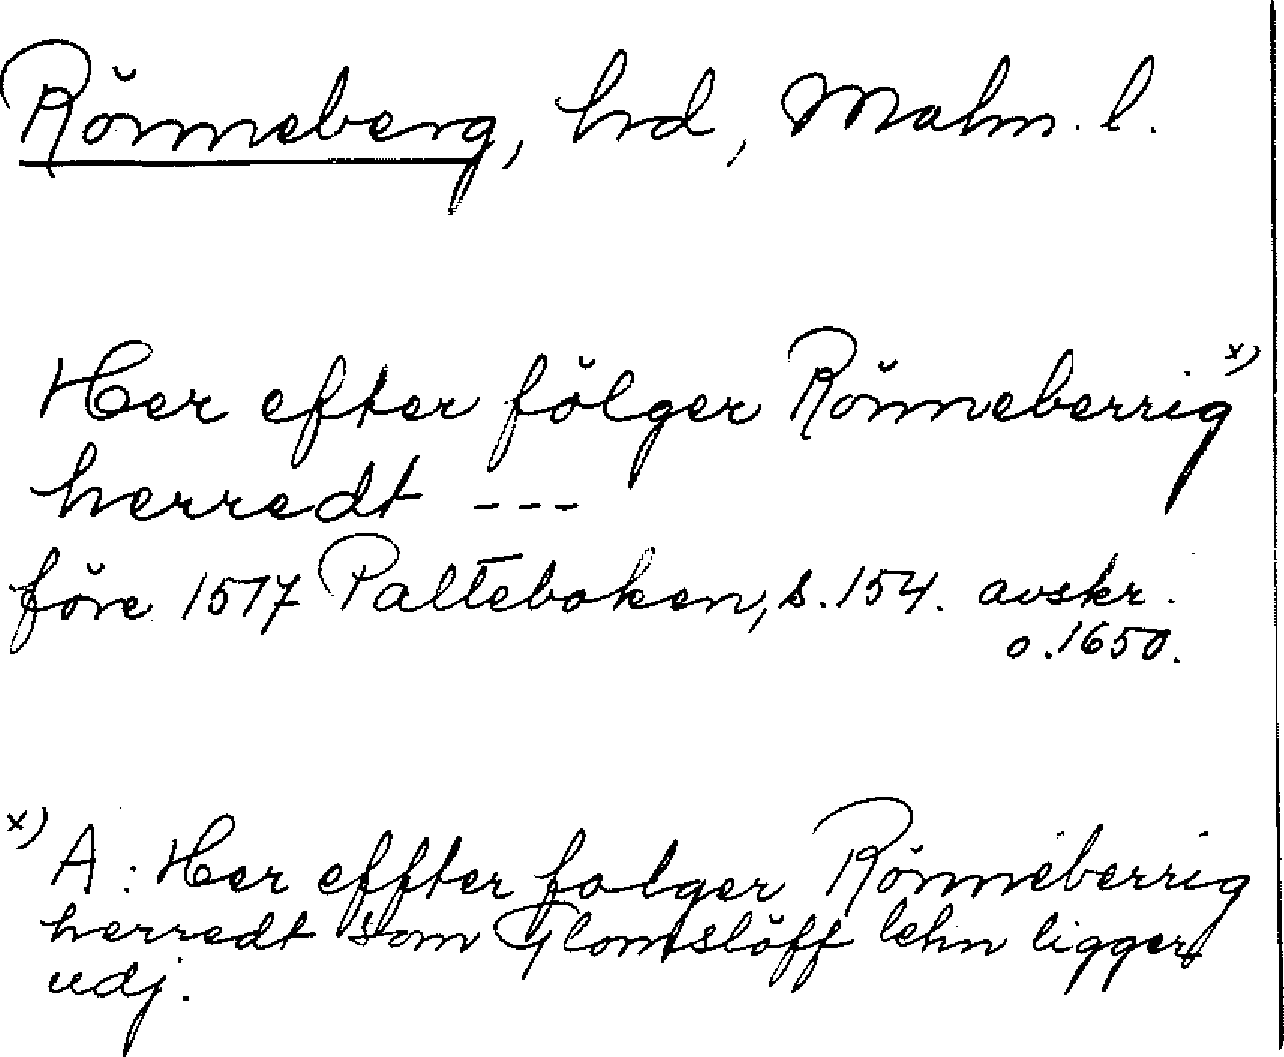 Rönneberg, hrd, Malm. l.
Her efter fölger Rönneberrig x)
herredt ---
före 1517 Palteboken, s. 154. avskr.
o. 1650.
x) A: Her effter folger Rönneberrig
herredt som Glomslöff lehn ligger
udj.